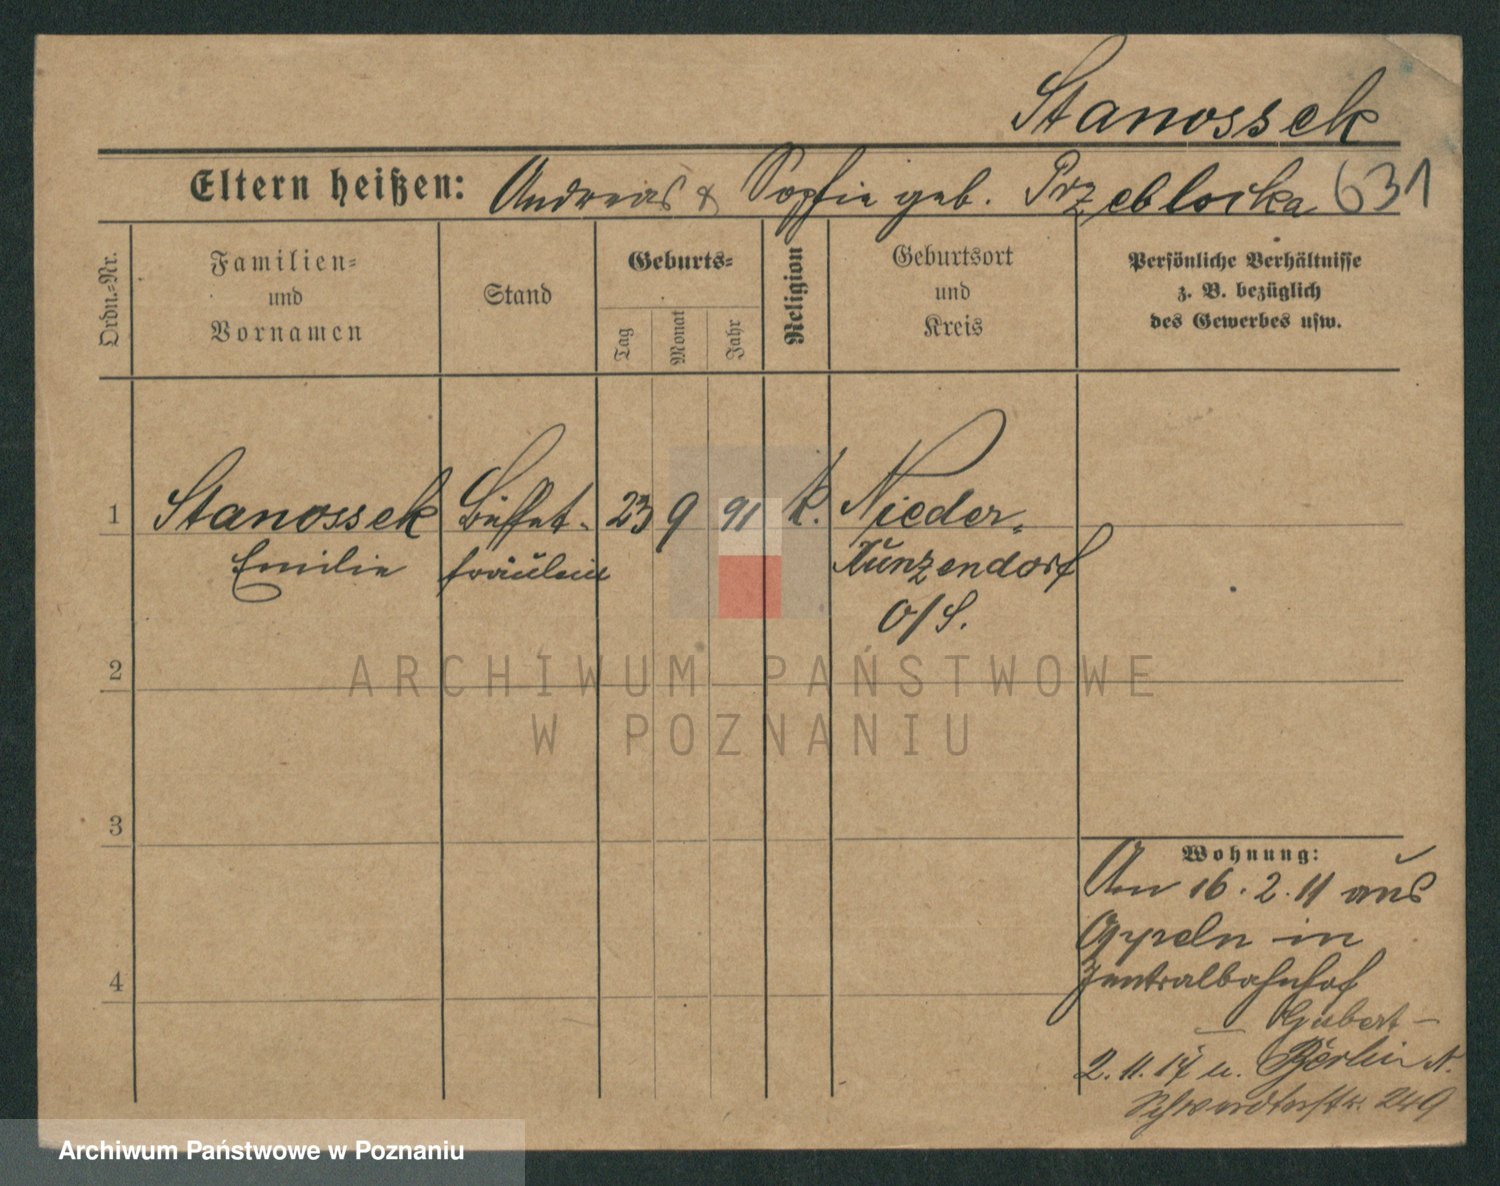 Stanossek
Eltern heißen: Andreas & Sophie geb. Przeblocka 631
Ordn.-Nr.
Familien-
und
Vornamen
Stand
Geburts-
Tag
Monat
Jahr
Religion
Geburtsort
und
Kreis
Persönliche Verhältnisse
z. B. bezüglich
des Gewerbes usw.
1 Stanossek Büffet- 23 9 91 k. Nieder-
Emilie fräulein Kunzendorf
O/S.
2
3
4
Wohnung:
Am 16.2.11 aus
Oppeln in
Zentralbahnhof
— Gubert —
2.11.17 n. Berlin N.
249
ARCHIWUM PAŃSTWOWE
W POZNANIU
Archiwum Państwowe w Poznaniu